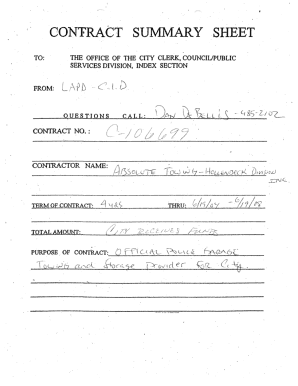 CONTRACT SUMMARY SHEET
TO: THE OFFICE OF THE CITY CLERK, COUNCIL/PUBLIC
SERVICES DIVISION, INDEX SECTION
FROM: LAPD - C.I.D.
QUESTIONS CALL: Don DeBellis - 485-2102
CONTRACT NO.: C-106699
CONTRACTOR NAME: Absolute Towing - Hollenbeck Division
Inc.
TERM OF CONTRACT: 4 yrs THRU:
TOTAL AMOUNT: City Receives
PURPOSE OF CONTRACT: Official Police Garage
Towing and Storage Provider For City.